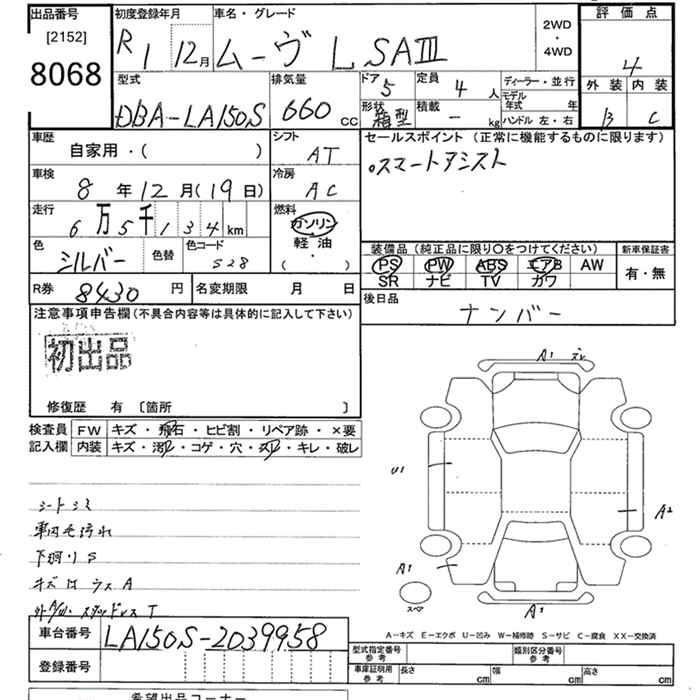 出品番号
[2152]
8068
初度登録年月
R1 12月
車名・グレード
ムーヴ L SAⅢ
2WD
・
4WD
評価点
4
外装 内装
B C
型式
DBA-LA150S
排気量
660 cc
ドア 5
形状 箱型
定員 4 人
積載 - kg
ディーラー・並行
モデル年式 年
ハンドル 左・右
車歴
自家用・( )
シフト
AT
車検
8 年 12 月(19日)
冷房
AC
走行
6万5千134km
燃料
ガソリン
軽油
( ・ )
色
シルバー
色替
色コード
S28
R券 8430 円
名変期限 月 日
セールスポイント (正常に機能するものに限ります)
○スマートアシスト
装備品 (純正品に限り○をつけてください)
PS PW ABS エアB AW
SR ナビ TV カワ
新車保証書
有・無
後日品
ナンバー
注意事項申告欄(不具合内容等は具体的に記入して下さい)
初出品
修復歴 有 〔箇所 〕
検査員記入欄
FW キズ・飛石・ヒビ割・リペア跡・×要
内装 キズ・汚レ・コゲ・穴・スレ・キレ・破レ
シートシミ
車内毛汚れ
下廻りS
キズ 凹 ウス A
スタッドレス T
A1 ズレ
U1
A2
A1
スペア
A1
A-キズ E-エクボ U-凹み W-補修跡 S-サビ C-腐食 XX-交換済
車台番号 LA150S-2039958
登録番号
型式指定番号 参考
類別区分番号 参考
車庫証明用 参考 長さ cm 幅 cm 高さ cm
希望出品コーナー